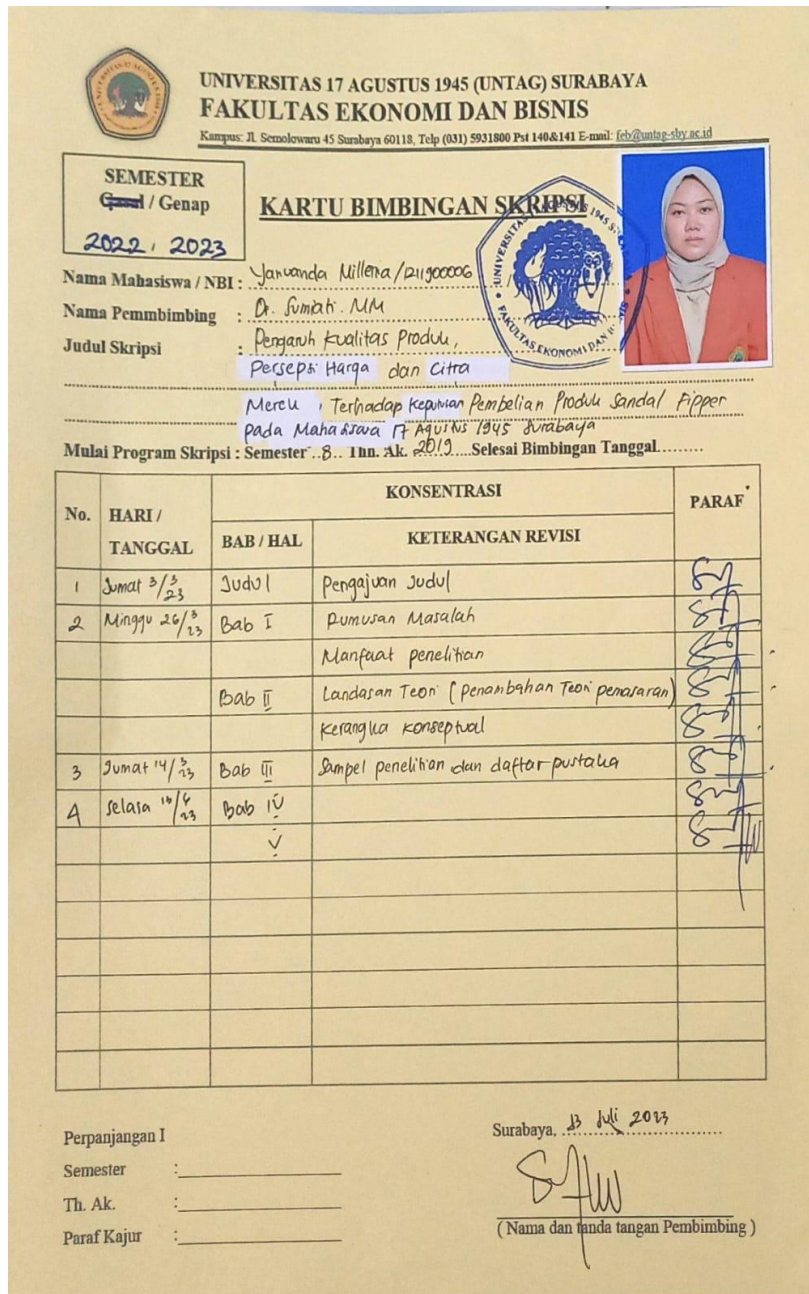 UNIVERSITAS 17 AGUSTUS 1945 (UNTAG) SURABAYA
FAKULTAS EKONOMI DAN BISNIS
Kampus: Jl. Semolowaru 45 Surabaya 60118, Telp (031) 5931800 Pst 140&141 E-mail: feb@untag-sby.ac.id
SEMESTER
Gasal / Genap
2022 / 2023
KARTU BIMBINGAN SKRIPSI
Nama Mahasiswa / NBI : Yanuanda Millenia /1211900006
Nama Pemmbimbing : Dr. Sumiati. MM
Judul Skripsi : Pengaruh Kualitas Produk,
Persepsi Harga dan Citra
Merek , Terhadap Keputusan Pembelian Produk Sandal Fipper
pada Mahasiswa 17 Agustus 1945 Surabaya
Mulai Program Skripsi : Semester 8 Thn. Ak. 2019 Selesai Bimbingan Tanggal
No. HARI / TANGGAL KONSENTRASI PARAF
BAB / HAL KETERANGAN REVISI
1 Jumat 3/3 23 Judul Pengajuan Judul
2 Minggu 26/3 23 Bab I Rumusan Masalah
Manfaat penelitian
Bab II Landasan Teori (penambahan Teori pemasaran)
Kerangka konseptual
3 Jumat 14/ 23 Bab III Sampel penelitian dan daftar pustaka
4 Selasa /6 23 Bab IV
V
Perpanjangan I
Semester :
Th. Ak. :
Paraf Kajur :
Surabaya, 13 Juli 2023
( Nama dan tanda tangan Pembimbing )